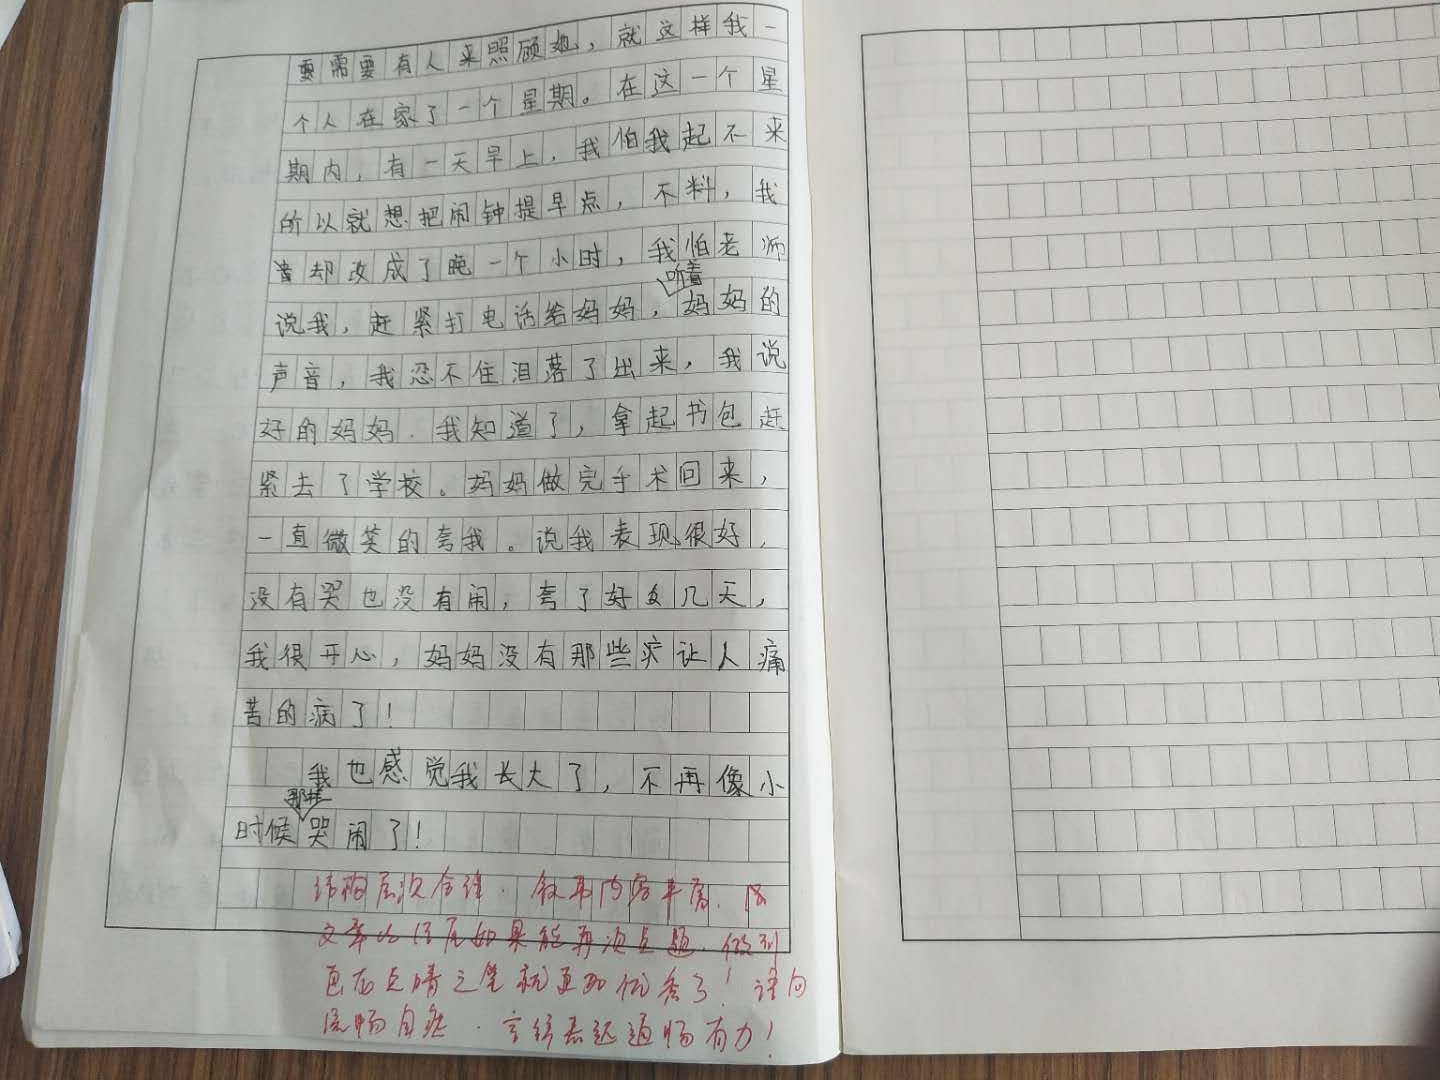 要需要有人来照顾她，就这样我一
个人在家了一个星期。在这一个星
期内，有一天早上，我怕我起不来
所以就想把闹钟提早点，不料，我
却改成了晚一个小时，我怕老师
听着
说我，赶紧打电话给妈妈，妈妈的
声音，我忍不住泪落了出来，我说
好的妈妈．我知道了，拿起书包赶
紧去了学校。妈妈做完手术回来，
一直微笑的夸我。说我表现很好，
没有哭也没有闹，夸了好多几天，
我很开心，妈妈没有那些让人痛
苦的病了！
我也感觉我长大了，不再像小
那样
时候哭闹了！
结构层次合理．叙事内容丰富．
文章的结尾如果能再次点题．做到
画龙点睛之笔就更加优秀了！语句
流畅自然．言辞表达通畅有力！